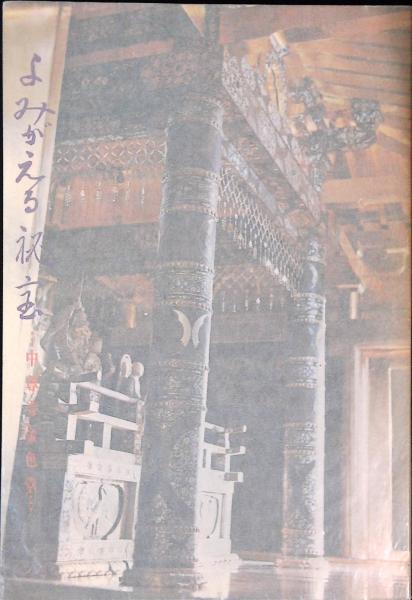 よみがえる秘宝
中尊寺金色堂